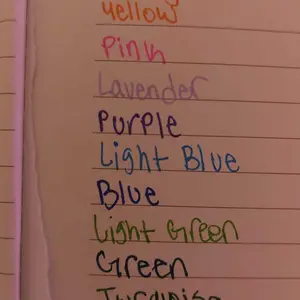 yellow
Pink
Lavender
Purple
Light Blue
Blue
Light Green
Green
Turquoise